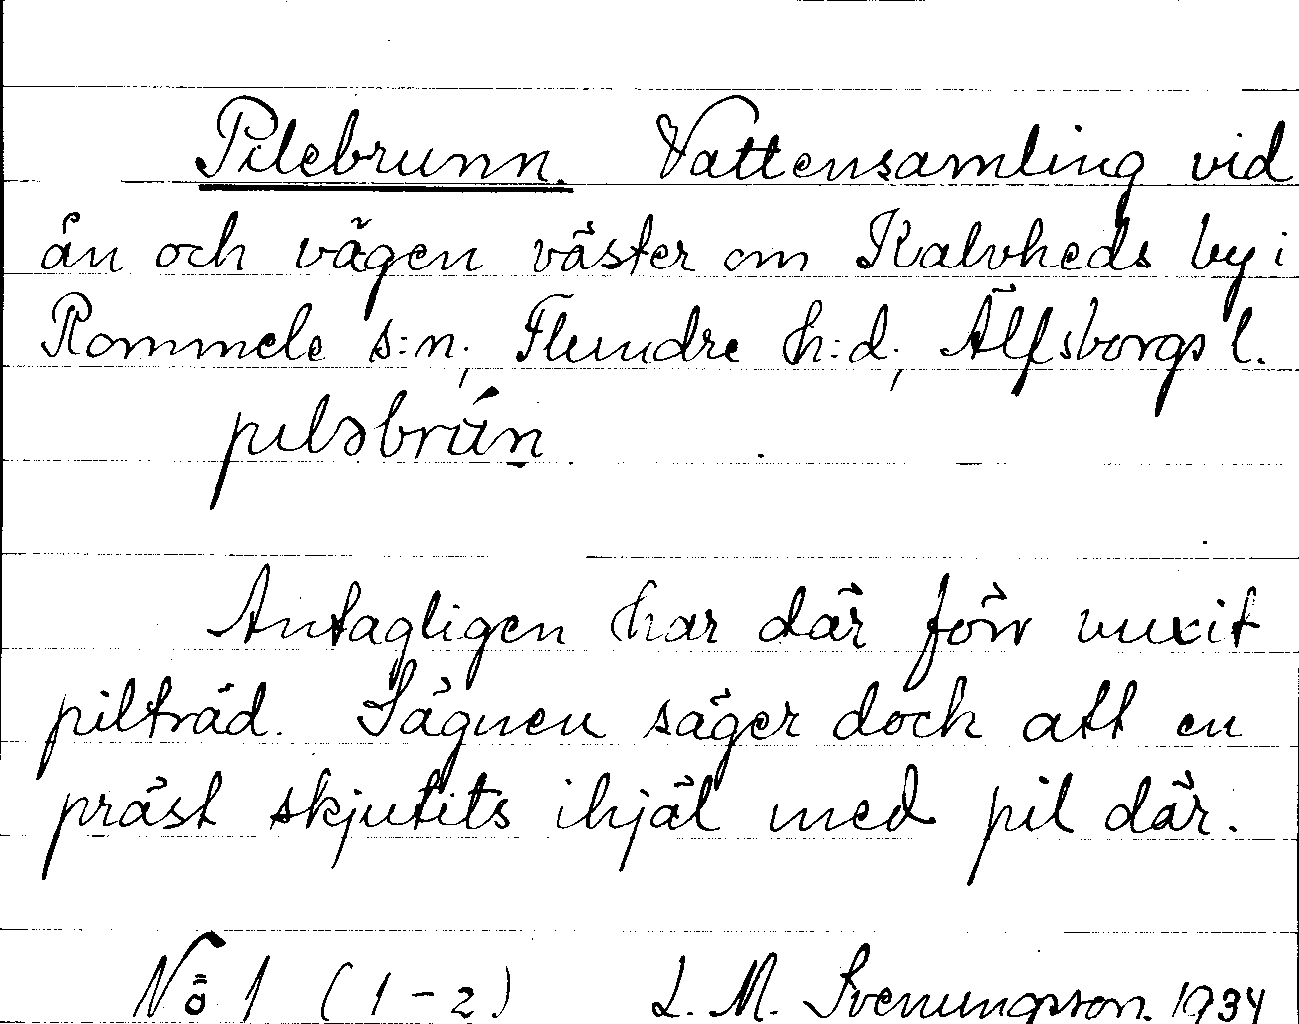 Pilebrunn. Vattensamling vid
ån och vägen väster om Kalvheds by i
Rommele s:n, Flundre h:d, Älfsborgs l.
pıləbrún
Antagligen har där förr vuxit
pilträd. Sägnen säger dock att en
präst skjutits ihjäl med pil där.
No 1 (1-2) L. M. Svenungsson. 1934